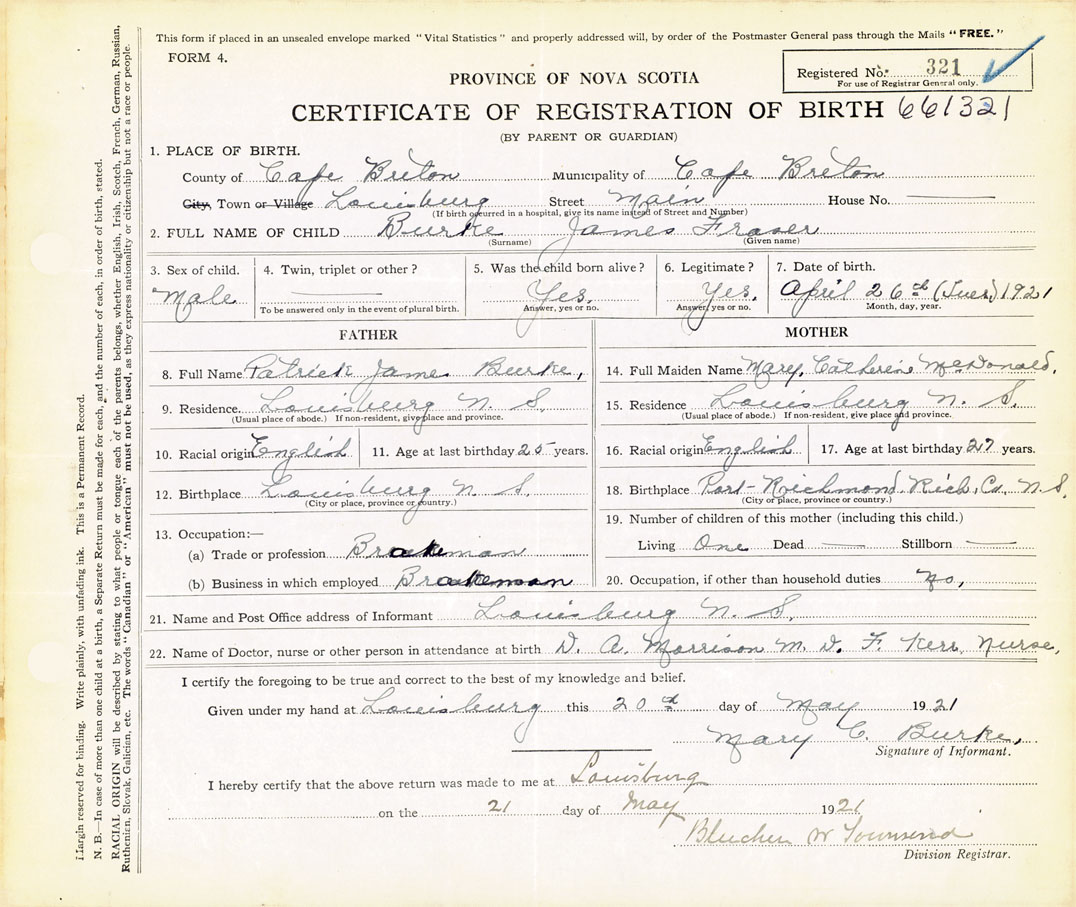 This form if placed in an unsealed envelope marked "Vital Statistics" and properly addressed will, by order of the Postmaster General pass through the Mails "FREE."
FORM 4.
Registered No. 321
For use of Registrar General only.
PROVINCE OF NOVA SCOTIA
CERTIFICATE OF REGISTRATION OF BIRTH 661321
(BY PARENT OR GUARDIAN)
1. PLACE OF BIRTH.
County of Cape Breton Municipality of Cape Breton
City, Town or Village Louisburg Street Main House No.
(If birth occurred in a hospital, give its name instead of Street and Number)
2. FULL NAME OF CHILD Burke James Fraser
(Surname) (Given name)
3. Sex of child. 4. Twin, triplet or other? 5. Was the child born alive? 6. Legitimate? 7. Date of birth.
Male Yes. Yes. April 26th (Tues.) 1921
To be answered only in the event of plural birth. Answer, yes or no. Answer, yes or no. Month, day, year.
FATHER
8. Full Name Patrick James Burke,
9. Residence. Louisburg N. S.
(Usual place of abode.) If non-resident, give place and province.
10. Racial origin English 11. Age at last birthday 25 years.
12. Birthplace Louisburg N. S.
(City or place, province or country.)
13. Occupation:—
(a) Trade or profession Brakeman
(b) Business in which employed Brakeman
MOTHER
14. Full Maiden Name Mary, Catherine McDonald,
15. Residence Louisburg N. S.
(Usual place of abode.) If non-resident, give place and province.
16. Racial origin English 17. Age at last birthday 27 years.
18. Birthplace Port-Richmond, Rich, Co, N. S.
(City or place, province or country.)
19. Number of children of this mother (including this child.)
Living One Dead Stillborn
20. Occupation, if other than household duties No,
21. Name and Post Office address of Informant Louisburg N. S.
22. Name of Doctor, nurse or other person in attendance at birth D. A. Morrison M. D. F. Kerr Nurse,
I certify the foregoing to be true and correct to the best of my knowledge and belief.
Given under my hand at Louisburg this 20 day of May 1921
Mary C. Burke,
Signature of Informant.
I hereby certify that the above return was made to me at Louisburg
on the 21 day of May 1921
Blucher W Townsend
Division Registrar.
Margin reserved for binding. Write plainly, with unfading ink. This is a Permanent Record.
N. B.—In case of more than one child at a birth, a Separate Return must be made for each, and the number of each, in order of birth, stated.
RACIAL ORIGIN will be described by stating to what people or tongue each of the parents belongs, whether English, Irish, Scotch, French, German, Russian,
Ruthenian, Slovak, Galician, etc. The words "Canadian" or "American" must not be used, as they express nationality or citizenship but not a race or people.